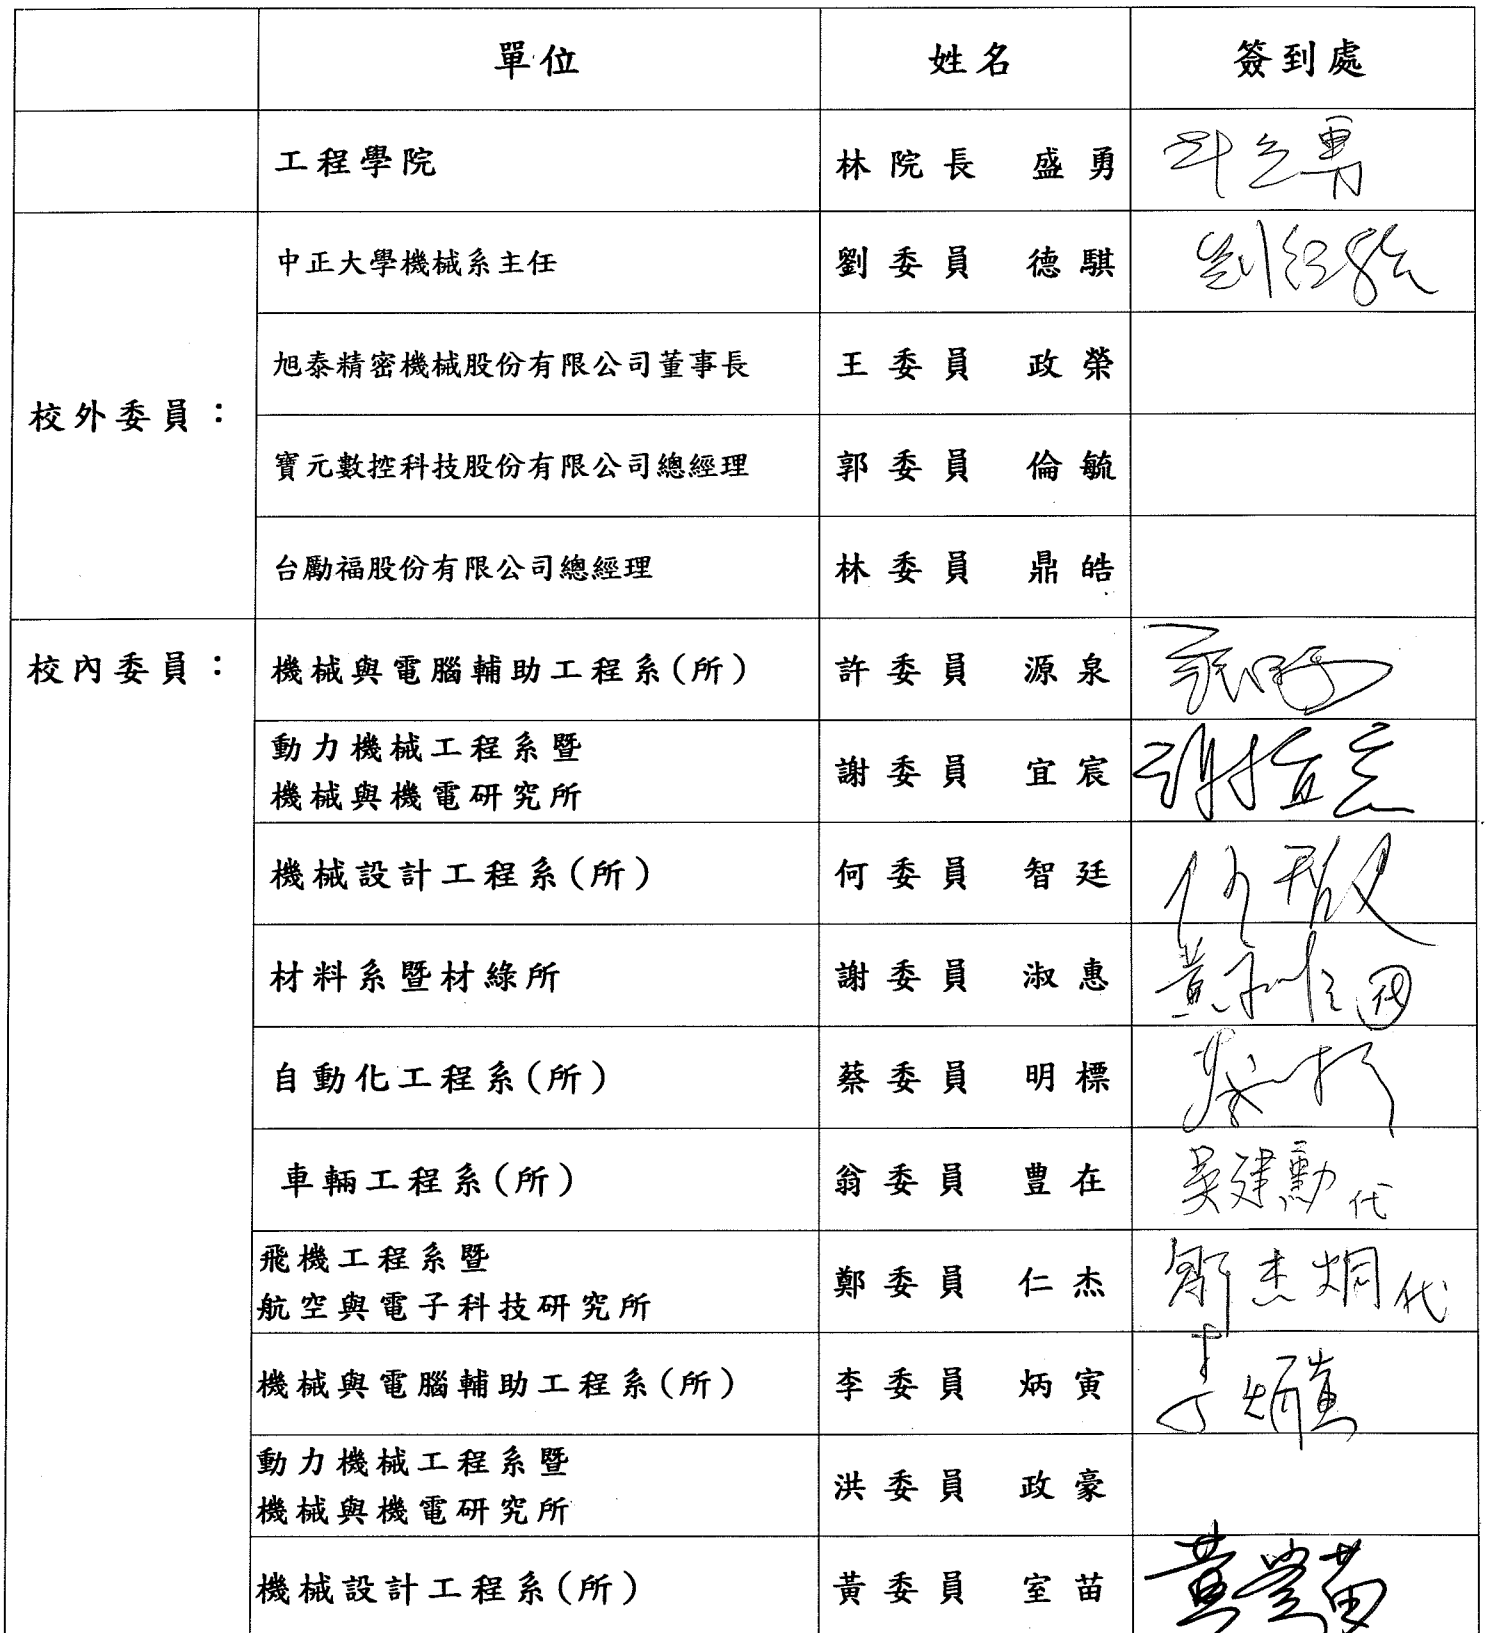 單位 姓名 簽到處
工程學院 林院長 盛勇
中正大學機械系主任 劉委員 德騏
旭泰精密機械股份有限公司董事長 王委員 政榮
校外委員：
寶元數控科技股份有限公司總經理 郭委員 倫毓
台勵福股份有限公司總經理 林委員 鼎皓
校內委員： 機械與電腦輔助工程系(所) 許委員 源泉
動力機械工程系暨
機械與機電研究所 謝委員 宜宸 謝宜宸
機械設計工程系(所) 何委員 智廷
材料系暨材綠所 謝委員 淑惠
自動化工程系(所) 蔡委員 明標
車輛工程系(所) 翁委員 豊在 吳建勳 代
飛機工程系暨
航空與電子科技研究所 鄭委員 仁杰 代
機械與電腦輔助工程系(所) 李委員 炳寅 李炳寅
動力機械工程系暨
機械與機電研究所 洪委員 政豪
機械設計工程系(所) 黃委員 室苗 黃室苗